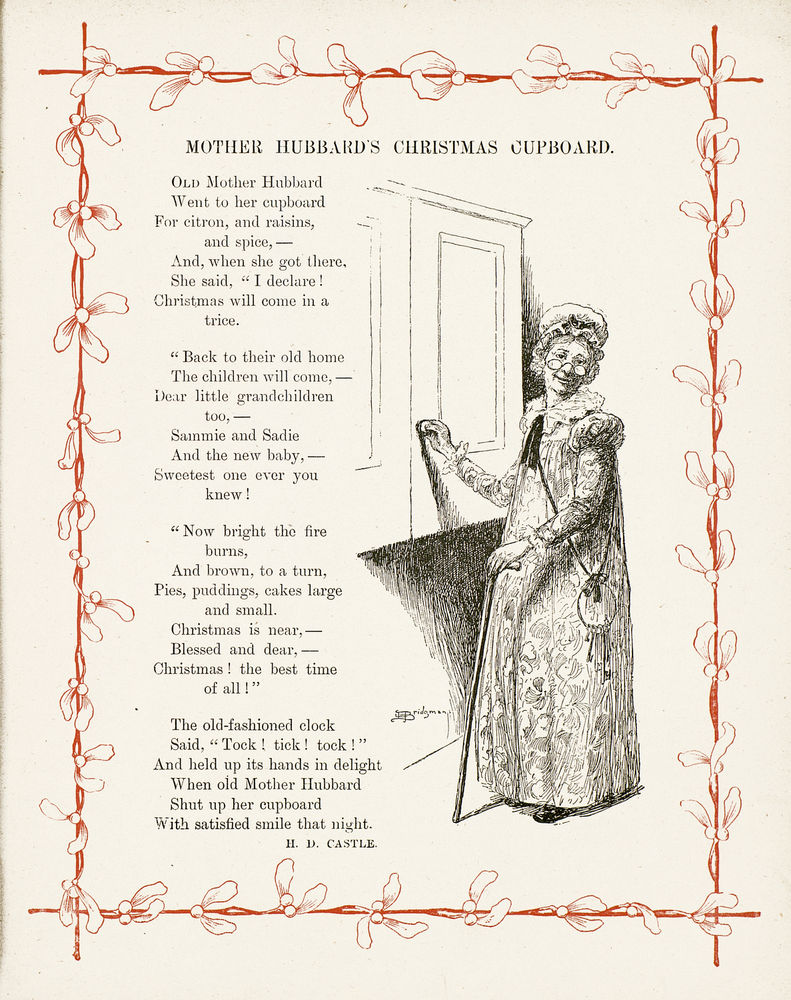 MOTHER HUBBARD'S CHRISTMAS CUPBOARD.
OLD Mother Hubbard
Went to her cupboard
For citron, and raisins,
and spice, —
And, when she got there,
She said, “I declare!
Christmas will come in a
trice.
“Back to their old home
The children will come, —
Dear little grandchildren
too, —
Sammie and Sadie
And the new baby, —
Sweetest one ever you
knew!
“Now bright the fire
burns,
And brown, to a turn,
Pies, puddings, cakes large
and small.
Christmas is near, —
Blessed and dear, —
Christmas! the best time
of all!”
The old-fashioned clock
Said, “Tock! tick! tock!”
And held up its hands in delight
When old Mother Hubbard
Shut up her cupboard
With satisfied smile that night.
H. D. CASTLE.
Bridgman